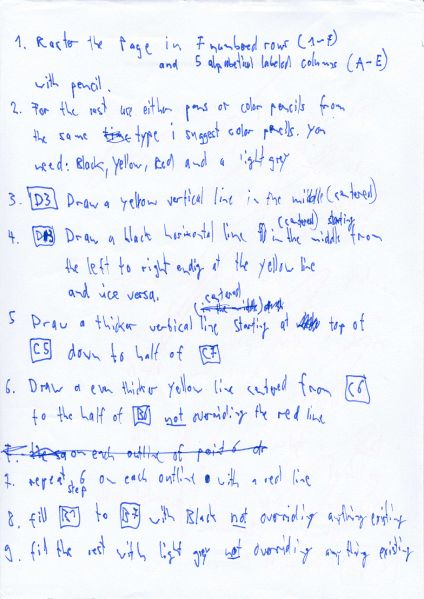 1. Raster the Page in 7 numbered rows (1-7)
and 5 alphabetical labeled columns (A-E)
with pencil.
2. For the rest use either pens or color pencils from
the same type i suggest color pencils. you
need: Black, yellow, Red and a light grey
3. D3 Draw a yellow vertical line in the middle (centered)
4. Draw a black horizontal line (centered) starting in the middle from
the left to right ending at the yellow line
and vice versa.
5 Draw a thicker vertical (centered) line starting at top of
C5 down to half of C7
6. Draw a even thicker yellow line centered from C6
to the half of not overriding the red line
7. repeat step 6 on each outline with a red line
8. fill to with Black not overriding anything existing
9. fill the rest with light grey not overriding anything existing